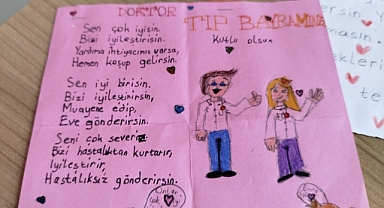 DOKTOR
Sen çok iyisin.
Bizi iyileştirisin.
Yardıma ihtiyacımız varsa,
Hemen koşup gelirsin.
Sen iyi birisin.
Bizi iyileştirirsin,
Muayene edip,
Eve gönderirsin.
Seni çok severiz
Bizi hastalıktan kurtarır,
iyileştirir,
Hastalıksız gönderirsin.
Onlar
TIP BAYRAMINIZ
Kutlu olsun